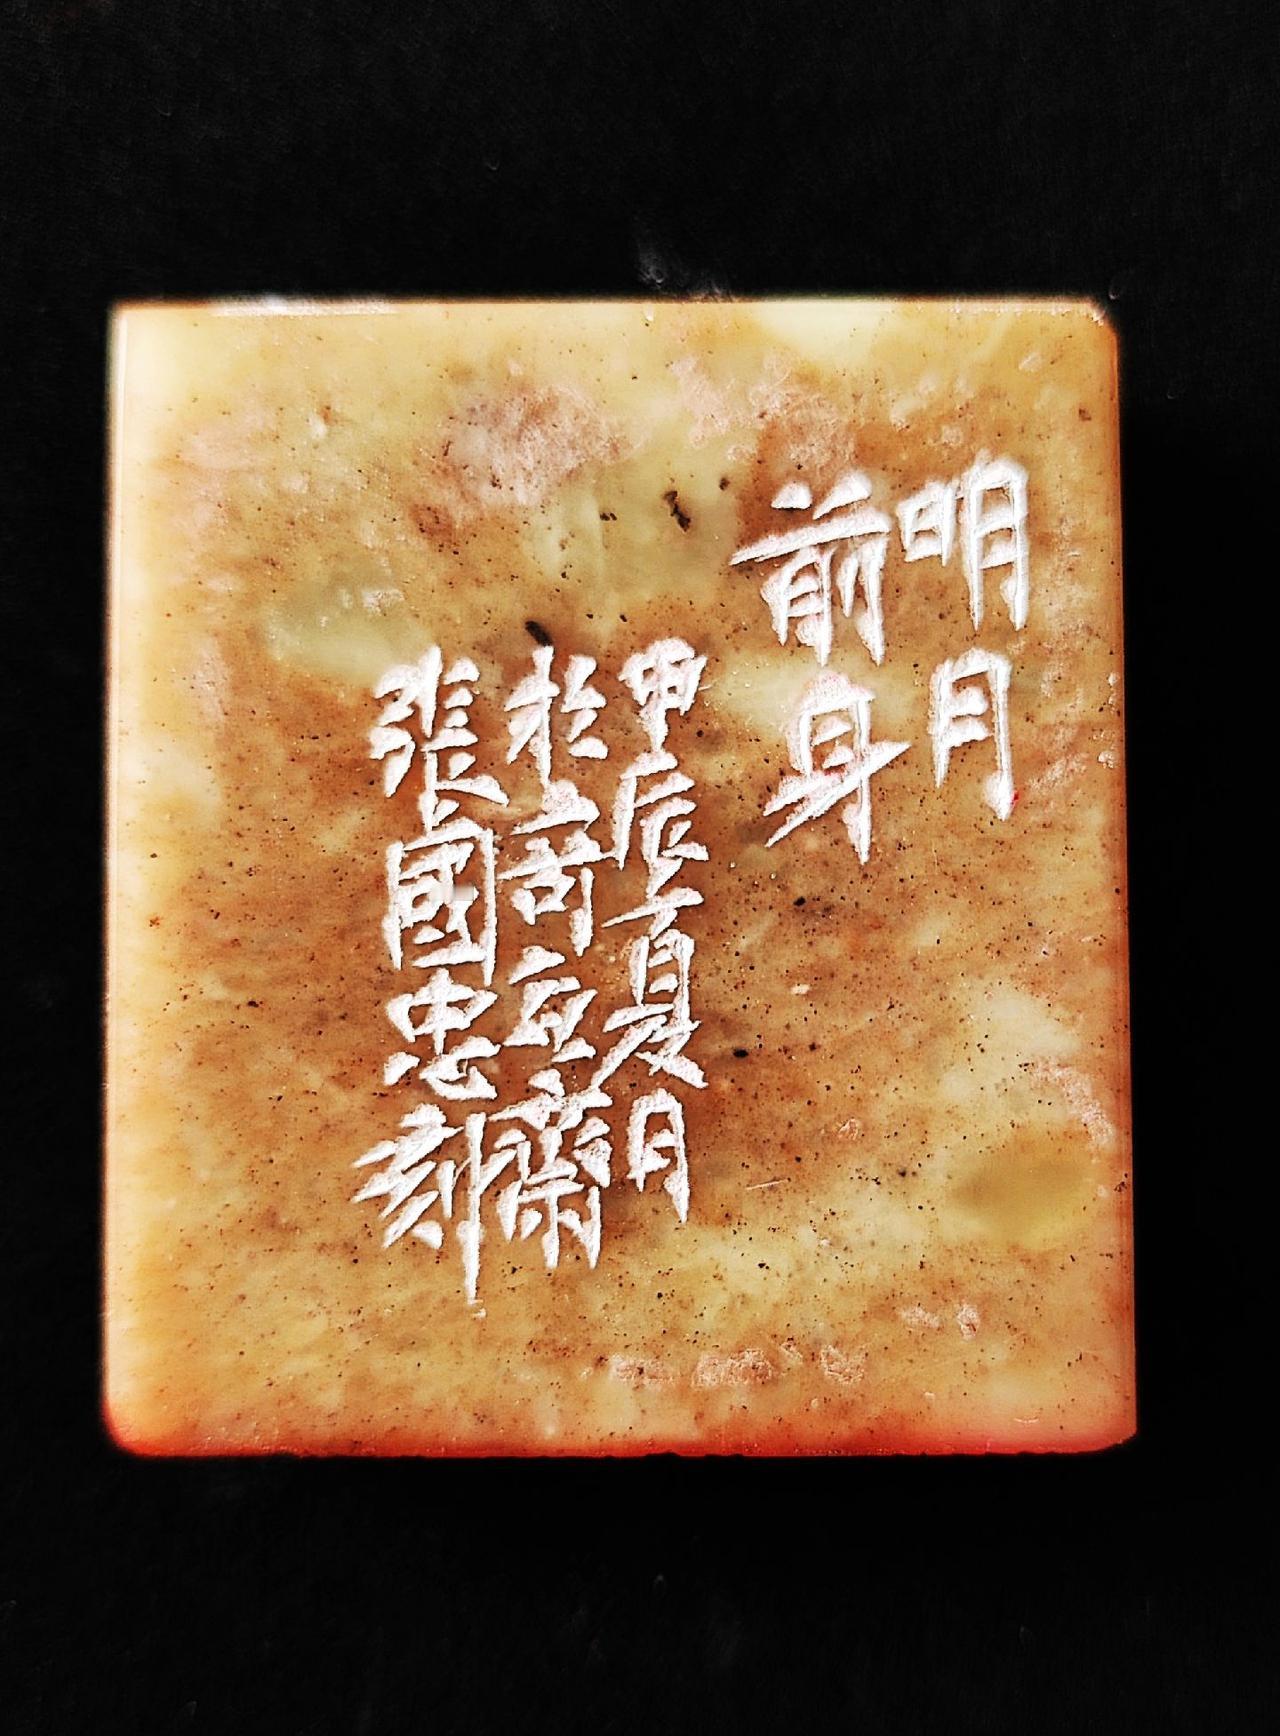 明月
前身
甲辰夏月
於齋
張國忠刻